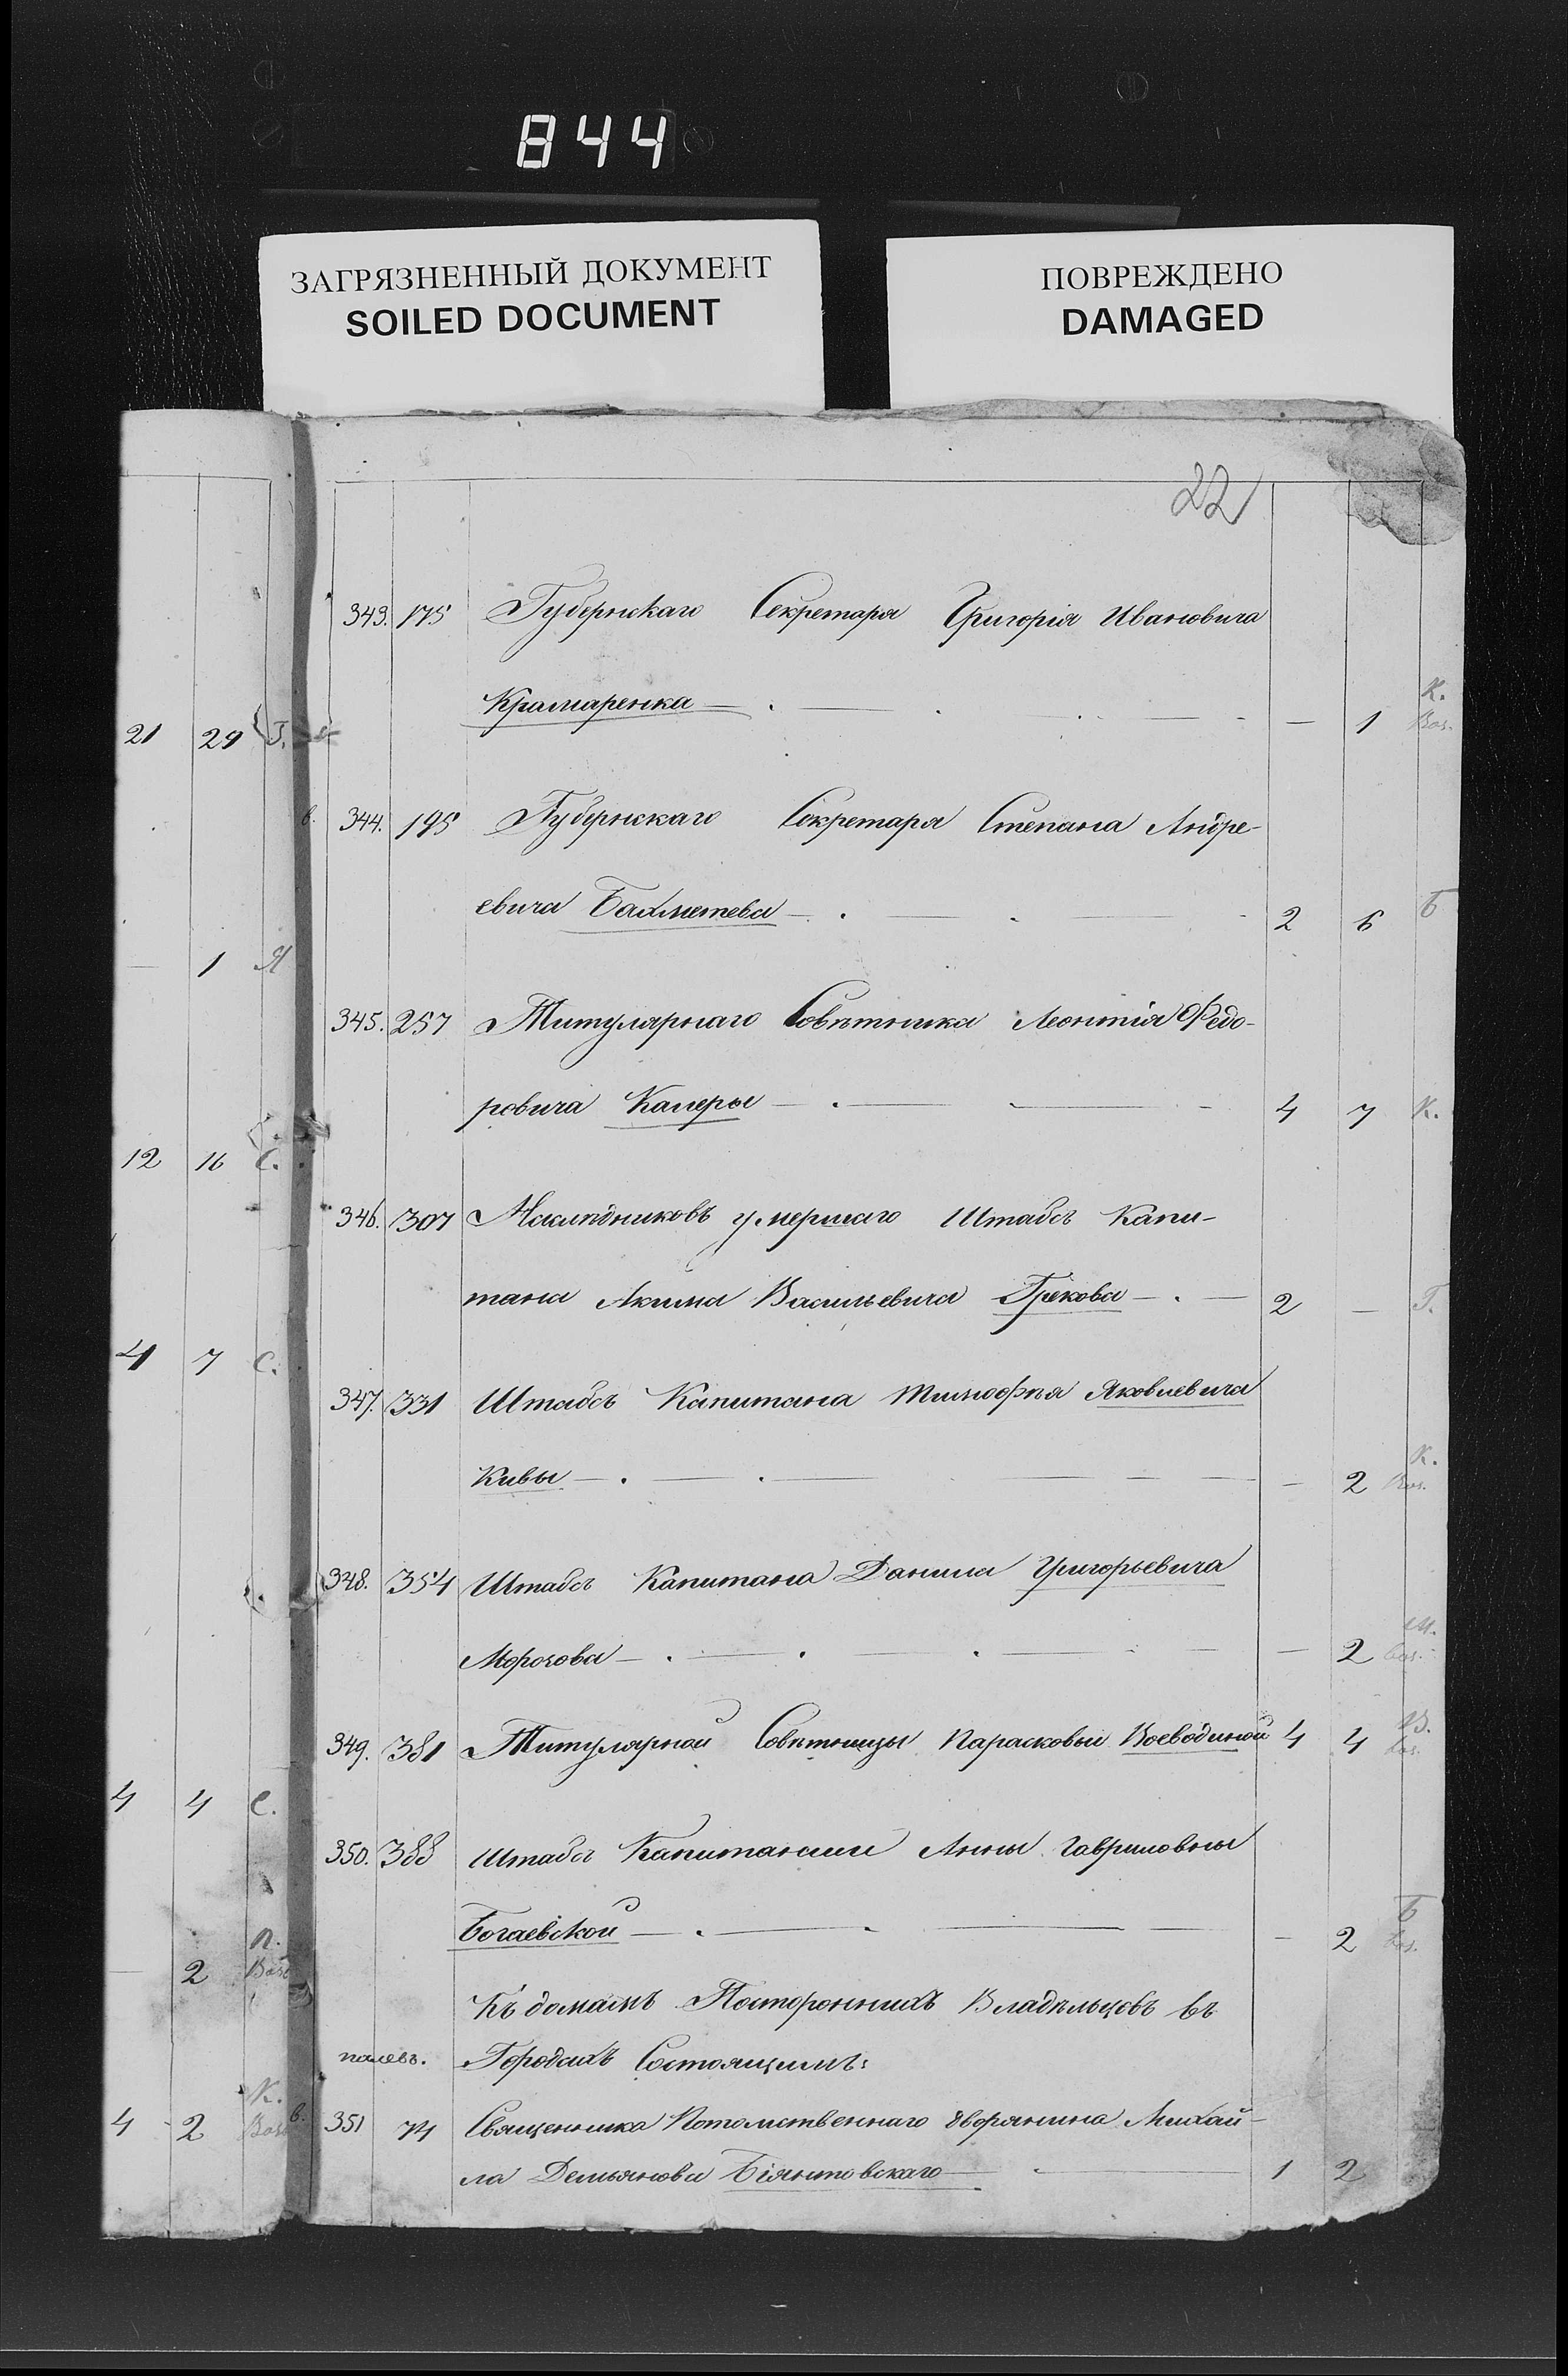 844
ЗАГРЯЗНЕННЫЙ ДОКУМЕНТ
SOILED DOCUMENT
ПОВРЕЖДЕНО
DAMAGED
21 29 Г.
1 Я
12 16 С.
4 7 С.
4 4 С.
2 П.
4 2 К.
22
343. 175 Губернскаго Секретаря Григорія Ивановича
Крамаренка — 1 К.
в. 344. 195 Губернскаго Секретаря Степана Андре-
евича Бахметева 2 6 Б
345. 257 Титулярнаго Совѣтника Леонтія Федо-
ровича Калеры 4 7 К.
346. 307 Наслѣдниковъ умершаго Штабсъ Капи-
тана Акима Васильевича Грекова 2 — Г.
347. 331 Штабсъ Капитана Тимофѣя Яковлевича
Кивы — 2 К.
348. 354 Штабсъ Капитана Данила Григорьевича
Морозова — 2 М.
349. 381 Титулярной Совѣтницы Парасковьи Воеводиной 4 4 В.
350. 388 Штабсъ Капитанши Анны Гавриловны
Богаевской — 2 Б
Къ домамъ Постороннихъ Владѣльцовъ въ
Городахъ Состоящимъ:
в. 351 74 Священника Потомственнаго дворянина Михай-
ла Демьянова 1 2